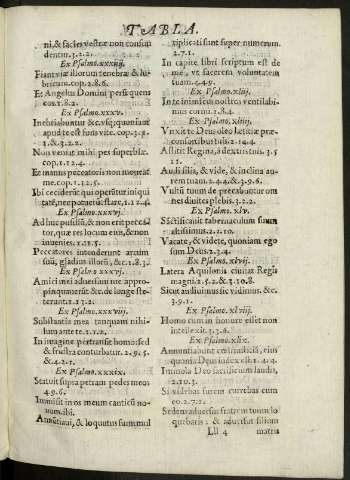 TABLA.
ni, & facies vestræ non confundentur. 3.2.2.
Ex Psalmo. xxxiiij.
Fiant viæ illorum tenebræ & lubricum. cop. 2.8.6.
Et Angelus Domini persequens eos. 1.8.2.
Ex Psalmo. xxxv.
Inebriabuntur &
apud te est fons vitæ. cop. 3.
1. & 3.2.2.
Non veniat mihi pes superbiæ.
cop. 1.12.4.
Et manus peccatoris non moueat
me. cop. 1.12.5.
Ibi ceciderūt qui operātur iniquitatē, nec potuerūt stare, 1.12.4.
Ex Psalmo. xxxvj.
Ad huc pusillū, & non erit peccator, quæres locum eius, & non
inuenies. 1.11.5.
Peccatores intenderunt arcum
suū, gladius illorū, &c. 1.8.3.
Ex Psalmo. xxxvij.
Amici mei aduersum me appropinquauerūt &c. de longe steterunt. 2.13.2.
Ex Psalmo. xxxviij.
Substantia mea tanquam nihilum ante te. 1.1.2.
In imagine pertransit homo: sed
& frustra conturbatur. 2.9.5.
& 4.2.1.
Ex Psalmo. xxxix.
Statuit supra petram pedes meos
4.9.6.
Immisit in os meum canticū nouum. ibi.
Annūtiaui, & loquutus sum multiplicati sunt super numerum.
2.7.1.
In capite libri scriptum est de
me, vt facerem voluntatem
tuam. 4.4.9.
Ex Psalmo. xliij.
In te inimicos nostros ventilabimus cornu. 1.8.4.
Ex Psalmo. xliiij.
Vnxit te Deus oleo lætitiæ præ consortibus tuis. 2.14.4.
Astitit Regina, à dextris tuis. 3.5
11.
Audi filia, & vide, & inclina aurem tuam. 2.4.4. & 3.9.6.
Vultū tuum deprecabuntur omnes diuites plebis. 3.2.2.
Ex Psalmo. xlv.
Sāctificauit tabernaculum suum
altissimus. 2.2.10.
Vacate, & videte, quoniam ego
sum Deus. 2.3.4.
Ex Psalmo. xlvij.
Latera Aquilonis ciuitas Regis
magni. 1.5.2. & 3.10.8.
Sicut audiuimus sic vidimus. &c.
3.9.1.
Ex Psalmo. xlviij.
Homo cum in honore esset non
intellexit. 3.3.6.
Ex Psalmo. xlix.
Annuntiabunt cœli iustitiā eius
quoniā Deus iudex est. 1.4.4.
Immola Deo sacrificium laudis,
2.10.3.
Si videbas furem currebas cum
eo. 2.7.1.
Sedens aduersus fratrem tuum loquebaris: & aduersus filium
Lll 4 matris